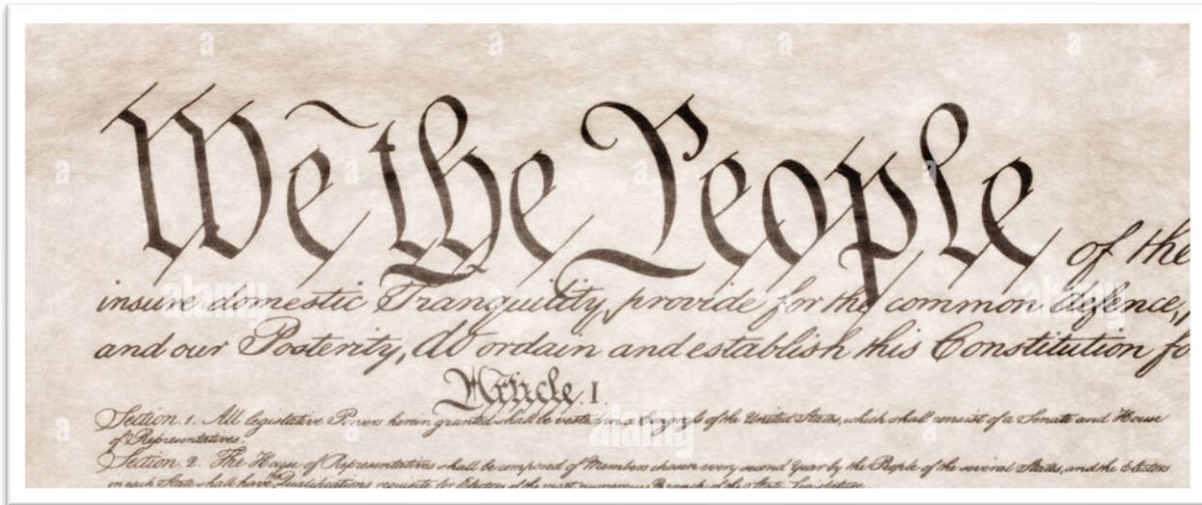 We the People of the
insure domestic Tranquility, provide for the common defence,
and our Posterity, do ordain and establish this Constitution fo
Article. I.
Section. 1. All legislative Powers herein granted shall be vested in a Congress of the United States, which shall consist of a Senate and House
of Representatives.
Section. 2. The House of Representatives shall be composed of Members chosen every second Year by the People of the several States, and the Electors
in each State shall have the Qualifications requisite for Electors of the most numerous Branch of the State Legislature.
a a a a
a a a a
alamy alamy alamy
a a a
alamy